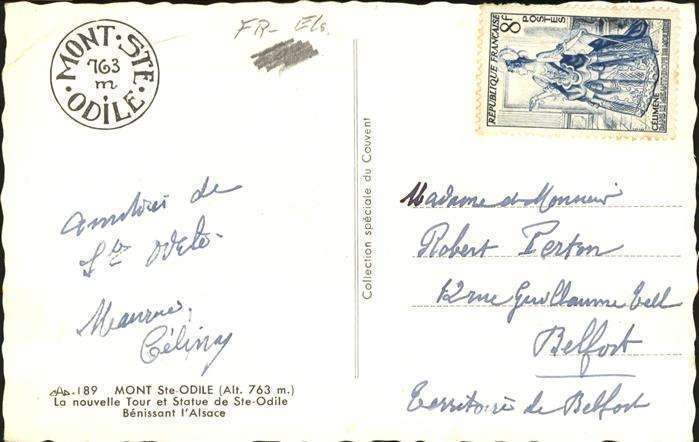 MONT · STE · ODILE ·
763
m
FR- Els.
8F
POSTES
REPUBLIQUE FRANÇAISE
CÉLIMÈNE
de
Ste Odile
Maurice,
Collection spéciale du Couvent
Madame et Monsieur
Robert Perton
12 rue Guillaume Tell
Belfort
Territoire de Belfort
189 MONT Ste-ODILE (Alt. 763 m.)
La nouvelle Tour et Statue de Ste-Odile
Bénissant l'Alsace